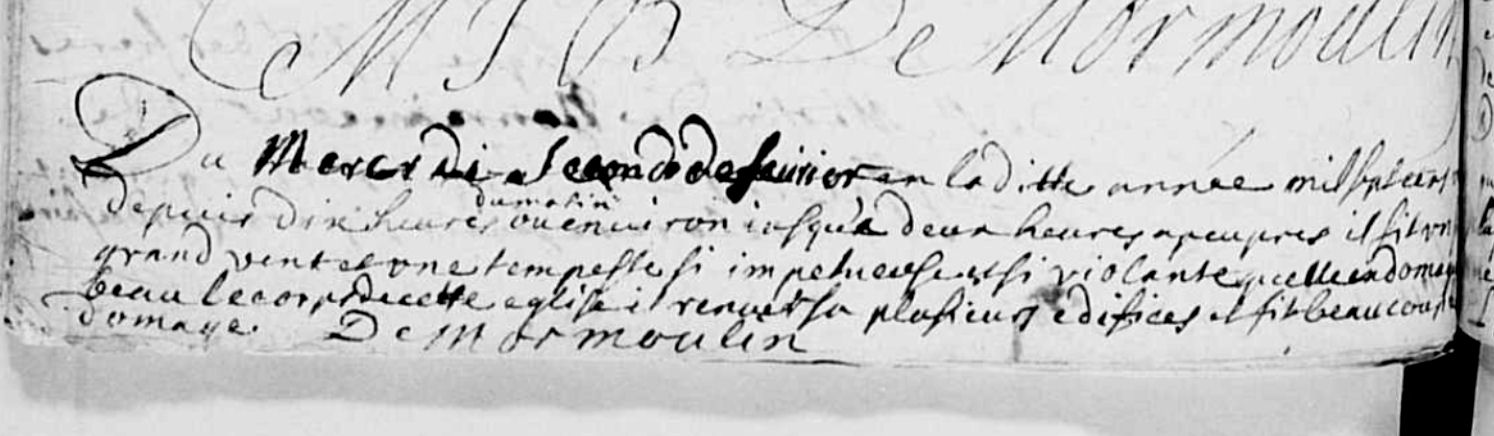 M J B De Mormoulin
Du Mercredi second de feuvrier en laditte année mil sept cent
depuis dix heures du matin ou enuiron iusqua deux heures apeupres il fit un
grand vent et une tempeste si impetueuse et si violante quelle endomagea
beau le corps de cette eglise il renuersa plusieurs edifices et fit beaucoup de
domage. De Mormoulin